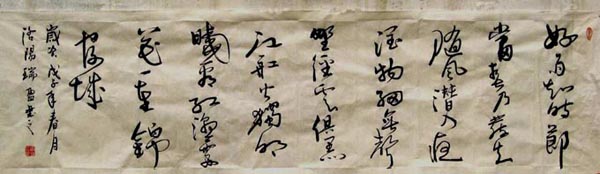 好雨知時節
當春乃發生
隨風潛入夜
潤物細無聲
野徑雲俱黑
江船火獨明
曉看紅濕處
花重錦
官城
歲次戊子年春月
陽瑞書之